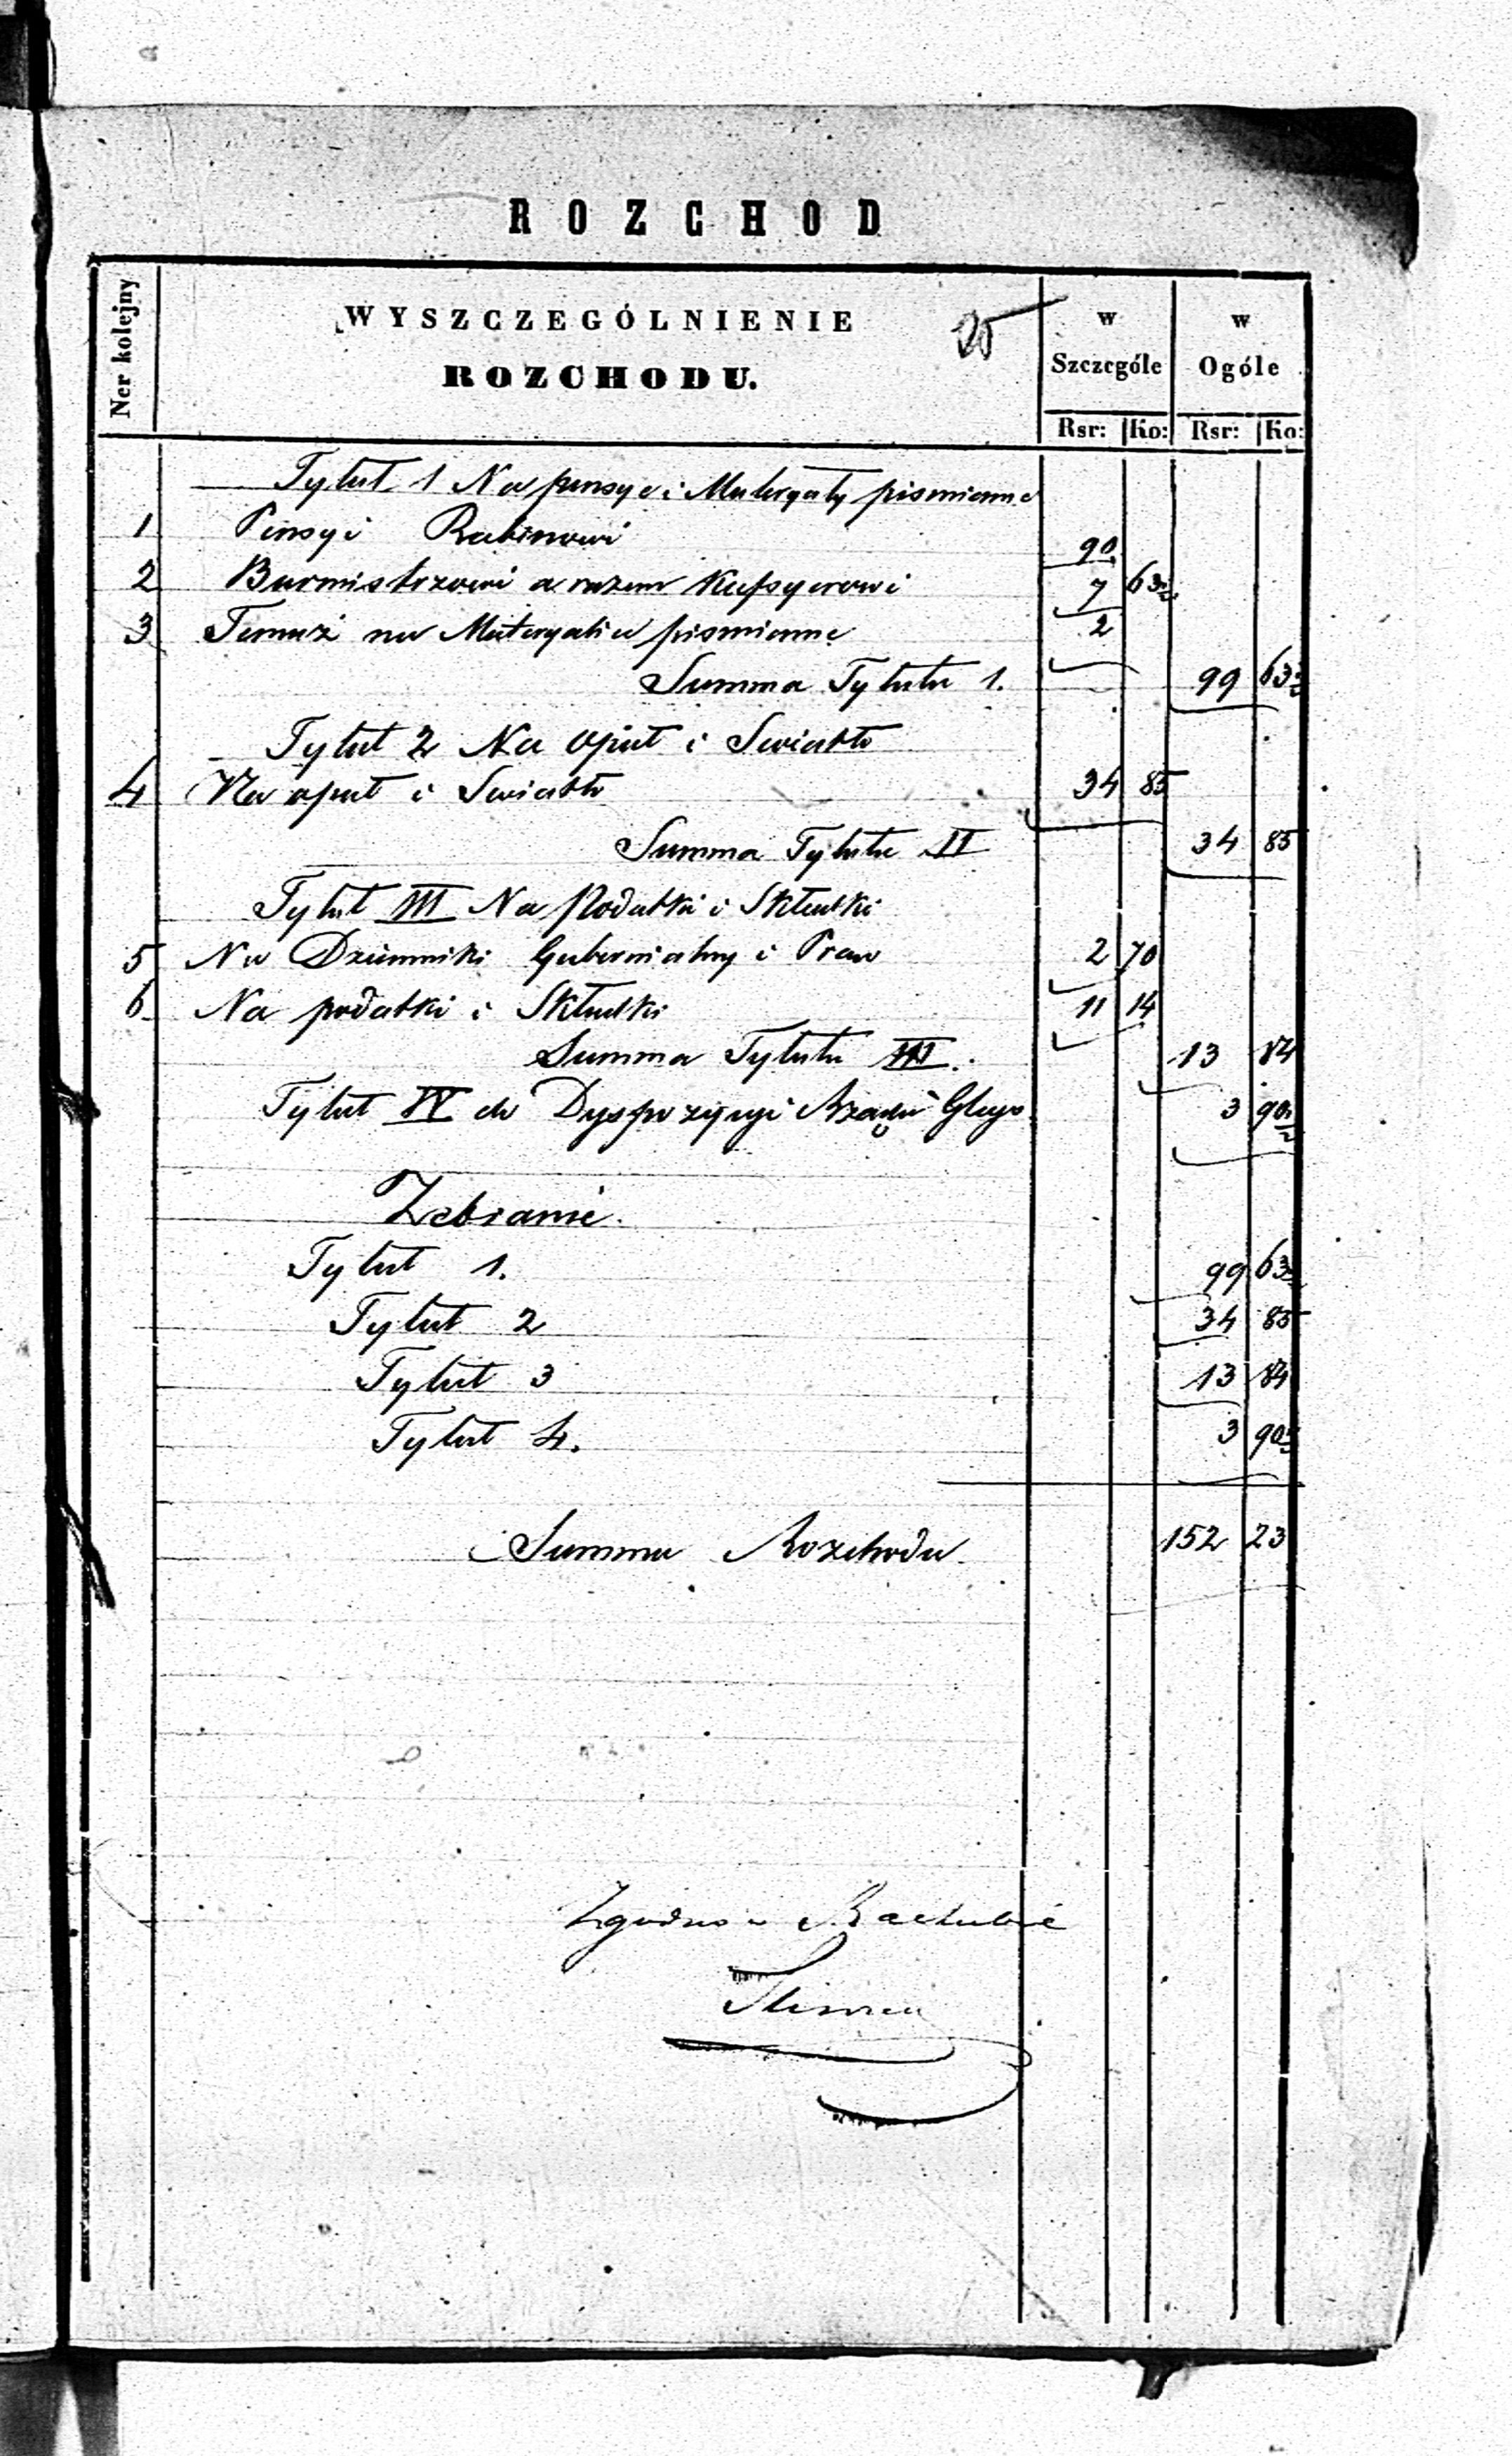 ROZCHOD
Ner kolejny
WYSZCZEGÓLNIENIE
ROZCHODU.
25
w Szczególe
w Ogóle
Rsr: Ko: Rsr: Ko:
Tytuł 1 Na pensye i Materyały piśmienne
1 Pensyi Rabinowi 90
2 Burmistrzowi a razem Kassyerowi 7 63½
3 Temuż na Materyały piśmienne 2
Summa Tytułu 1. 99 63½
Tytuł 2 Na opał i Swiatło
4 Na opał i Swiatło 34 85
Summa Tytułu II 34 85
Tytuł III Na Podatki i Składki
5 Na Dzienniki Gubernialny i Praw 2 70
6 Na podatki i Składki 11 14
Summa Tytułu III. 13 84
Tytuł IV do Dyspozycyi Rządu 3 90½
Zebranie.
Tytuł 1. 99 63½
Tytuł 2 34 85
Tytuł 3 13 84
Tytuł 4. 3 90½
Summa Rozchodu 152 23
Zgodno w Rachubie